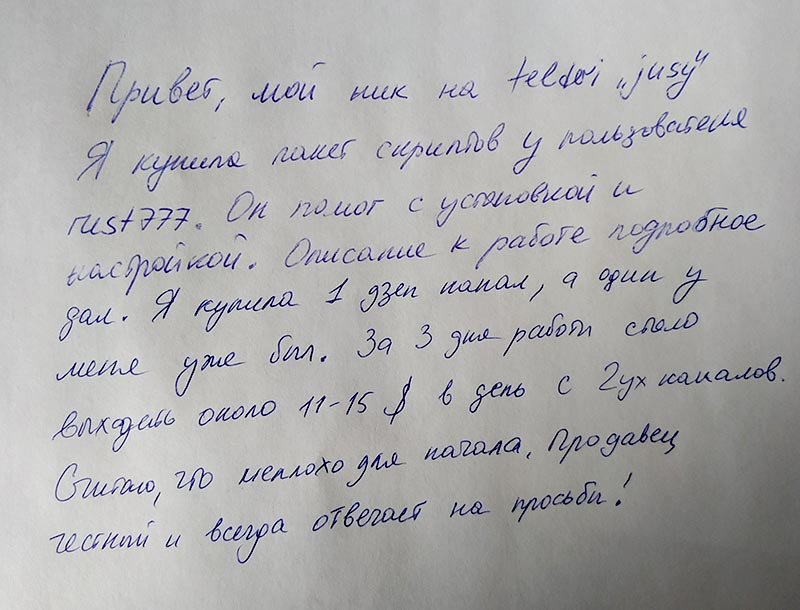 Привет, мой ник на teleri „jusy"
Я купила пакет скриптов у пользователя
rust777. Он помог с установкой и
настройкой. Описание к работе подробное
дал. Я купила 1 дзен канал, а один у
меня уже был. За 3 дня работы стало
выходить около 11-15 $ в день с 2ух каналов.
Считаю, что неплохо для начала. Продавец
честный и всегда отвечает на просьбы!